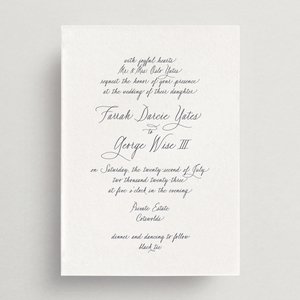 with joyful hearts
Mr. & Mrs. Oslo Yates
request the honor of your presence
at the wedding of their daughter
Farrah Darcie Yates
to
George Wise III
on Saturday, the twenty second of July
two thousand twenty three
at five o'clock in the evening
Private Estate
Cotswolds
dinner and dancing to follow
black tie